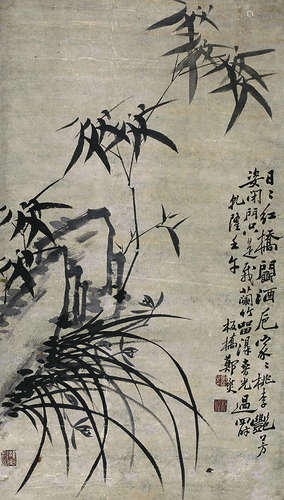 日〻紅橋鬭酒卮家〻桃李艷芳
姿閉門只是栽蘭竹留得春光過四時
乾隆壬午
板橋鄭燮